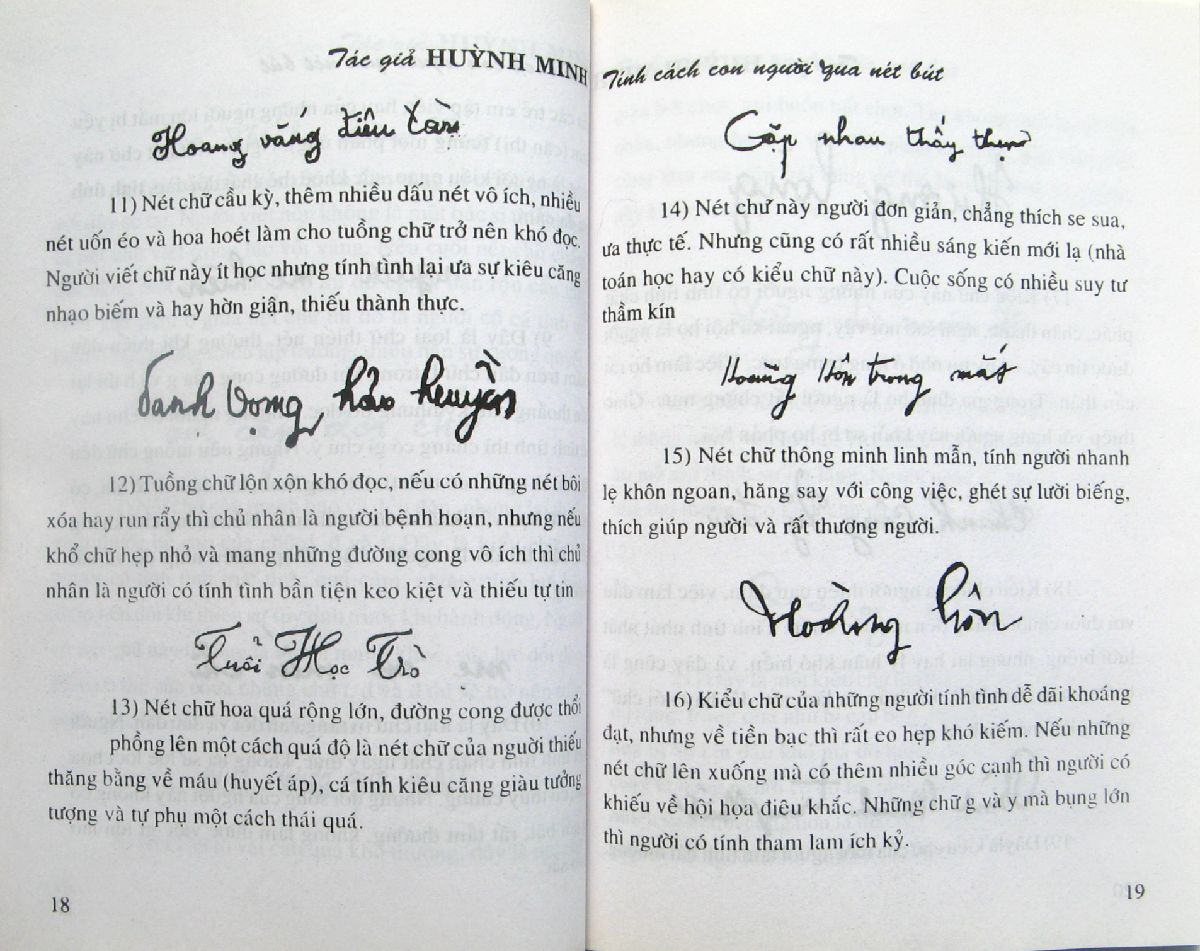 Tác giả HUỲNH MINH
Hoang vắng điêu tàn
11) Nét chữ cầu kỳ, thêm nhiều dấu nét vô ích, nhiều
nét uốn éo và hoa hoét làm cho tuồng chữ trở nên khó đọc.
Người viết chữ này ít học nhưng tính tình lại ưa sự kiêu căng
nhạo biếm và hay hờn giận, thiếu thành thực.
Danh vọng hảo huyền
12) Tuồng chữ lộn xộn khó đọc, nếu có những nét bôi
xóa hay run rẩy thì chủ nhân là người bệnh hoạn, nhưng nếu
khổ chữ hẹp nhỏ và mang những đường cong vô ích thì chủ
nhân là người có tính tình bần tiện keo kiệt và thiếu tự tin
Tuổi Học Trò
13) Nét chữ hoa quá rộng lớn, đường cong được thổi
phồng lên một cách quá độ là nét chữ của người thiếu
thăng bằng về máu (huyết áp), cá tính kiêu căng giàu tưởng
tượng và tự phụ một cách thái quá.
18
Tính cách con người qua nét bút
Gặp nhau thấy thẹn
14) Nét chư này người đơn giản, chẳng thích se sua,
ưa thực tế. Nhưng cũng có rất nhiều sáng kiến mới lạ (nhà
toán học hay có kiểu chữ này). Cuộc sống có nhiều suy tư
thầm kín
Hoàng hôn trong mắt
15) Nét chữ thông minh linh mẫn, tính người nhanh
lẹ khôn ngoan, hăng say với công việc, ghét sự lười biếng,
thích giúp người và rất thương người.
Hoàng hôn
16) Kiểu chữ của những người tính tình dễ dãi khoáng
đạt, nhưng về tiền bạc thì rất eo hẹp khó kiếm. Nếu những
nét chữ lên xuống mà có thêm nhiều góc cạnh thì người có
khiếu về hội họa điêu khắc. Những chữ g và y mà bụng lớn
thì người có tính tham lam ích kỷ.
19